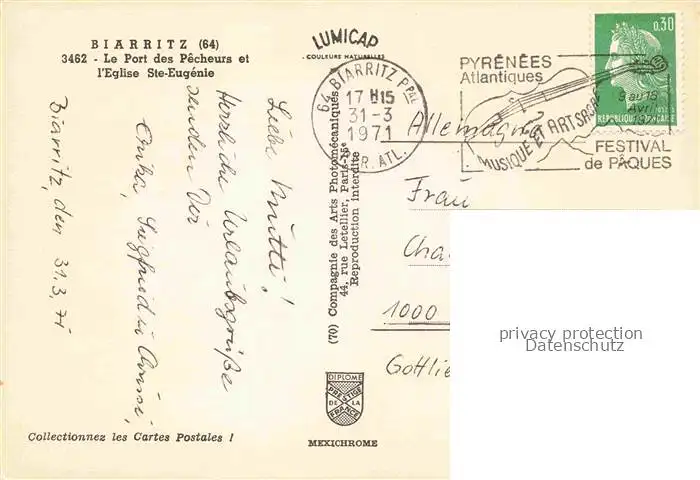 BIARRITZ (64)
3462 - Le Port des Pêcheurs et
l'Eglise Ste-Eugénie
LUMICAP
COULEURS NATURELLES
64 BIARRITZ PPAL
17 H15
31-3
1971
PYR. ATL.
PYRÉNÉES
Atlantiques
MUSIQUE ET ART SACRÉ
9 au 18
Avril
FESTIVAL
de PÂQUES
0,30
RÉPUBLIQUE FRANÇAISE
Biarritz, den 31.3.71
Liebe Mutti!
Herzliche Urlaubsgrüße
senden Dir
Siegfried
(70) Compagnie des Arts Photomécaniques
44, rue Letellier, Paris-15e
Reproduction interdite
Allemagne
Frau
Cha
1000
Gottlie
privacy protection
Datenschutz
DIPLOME
PRESTIGE
DE LA
FRANCE
MEXICHROME
Collectionnez les Cartes Postales !